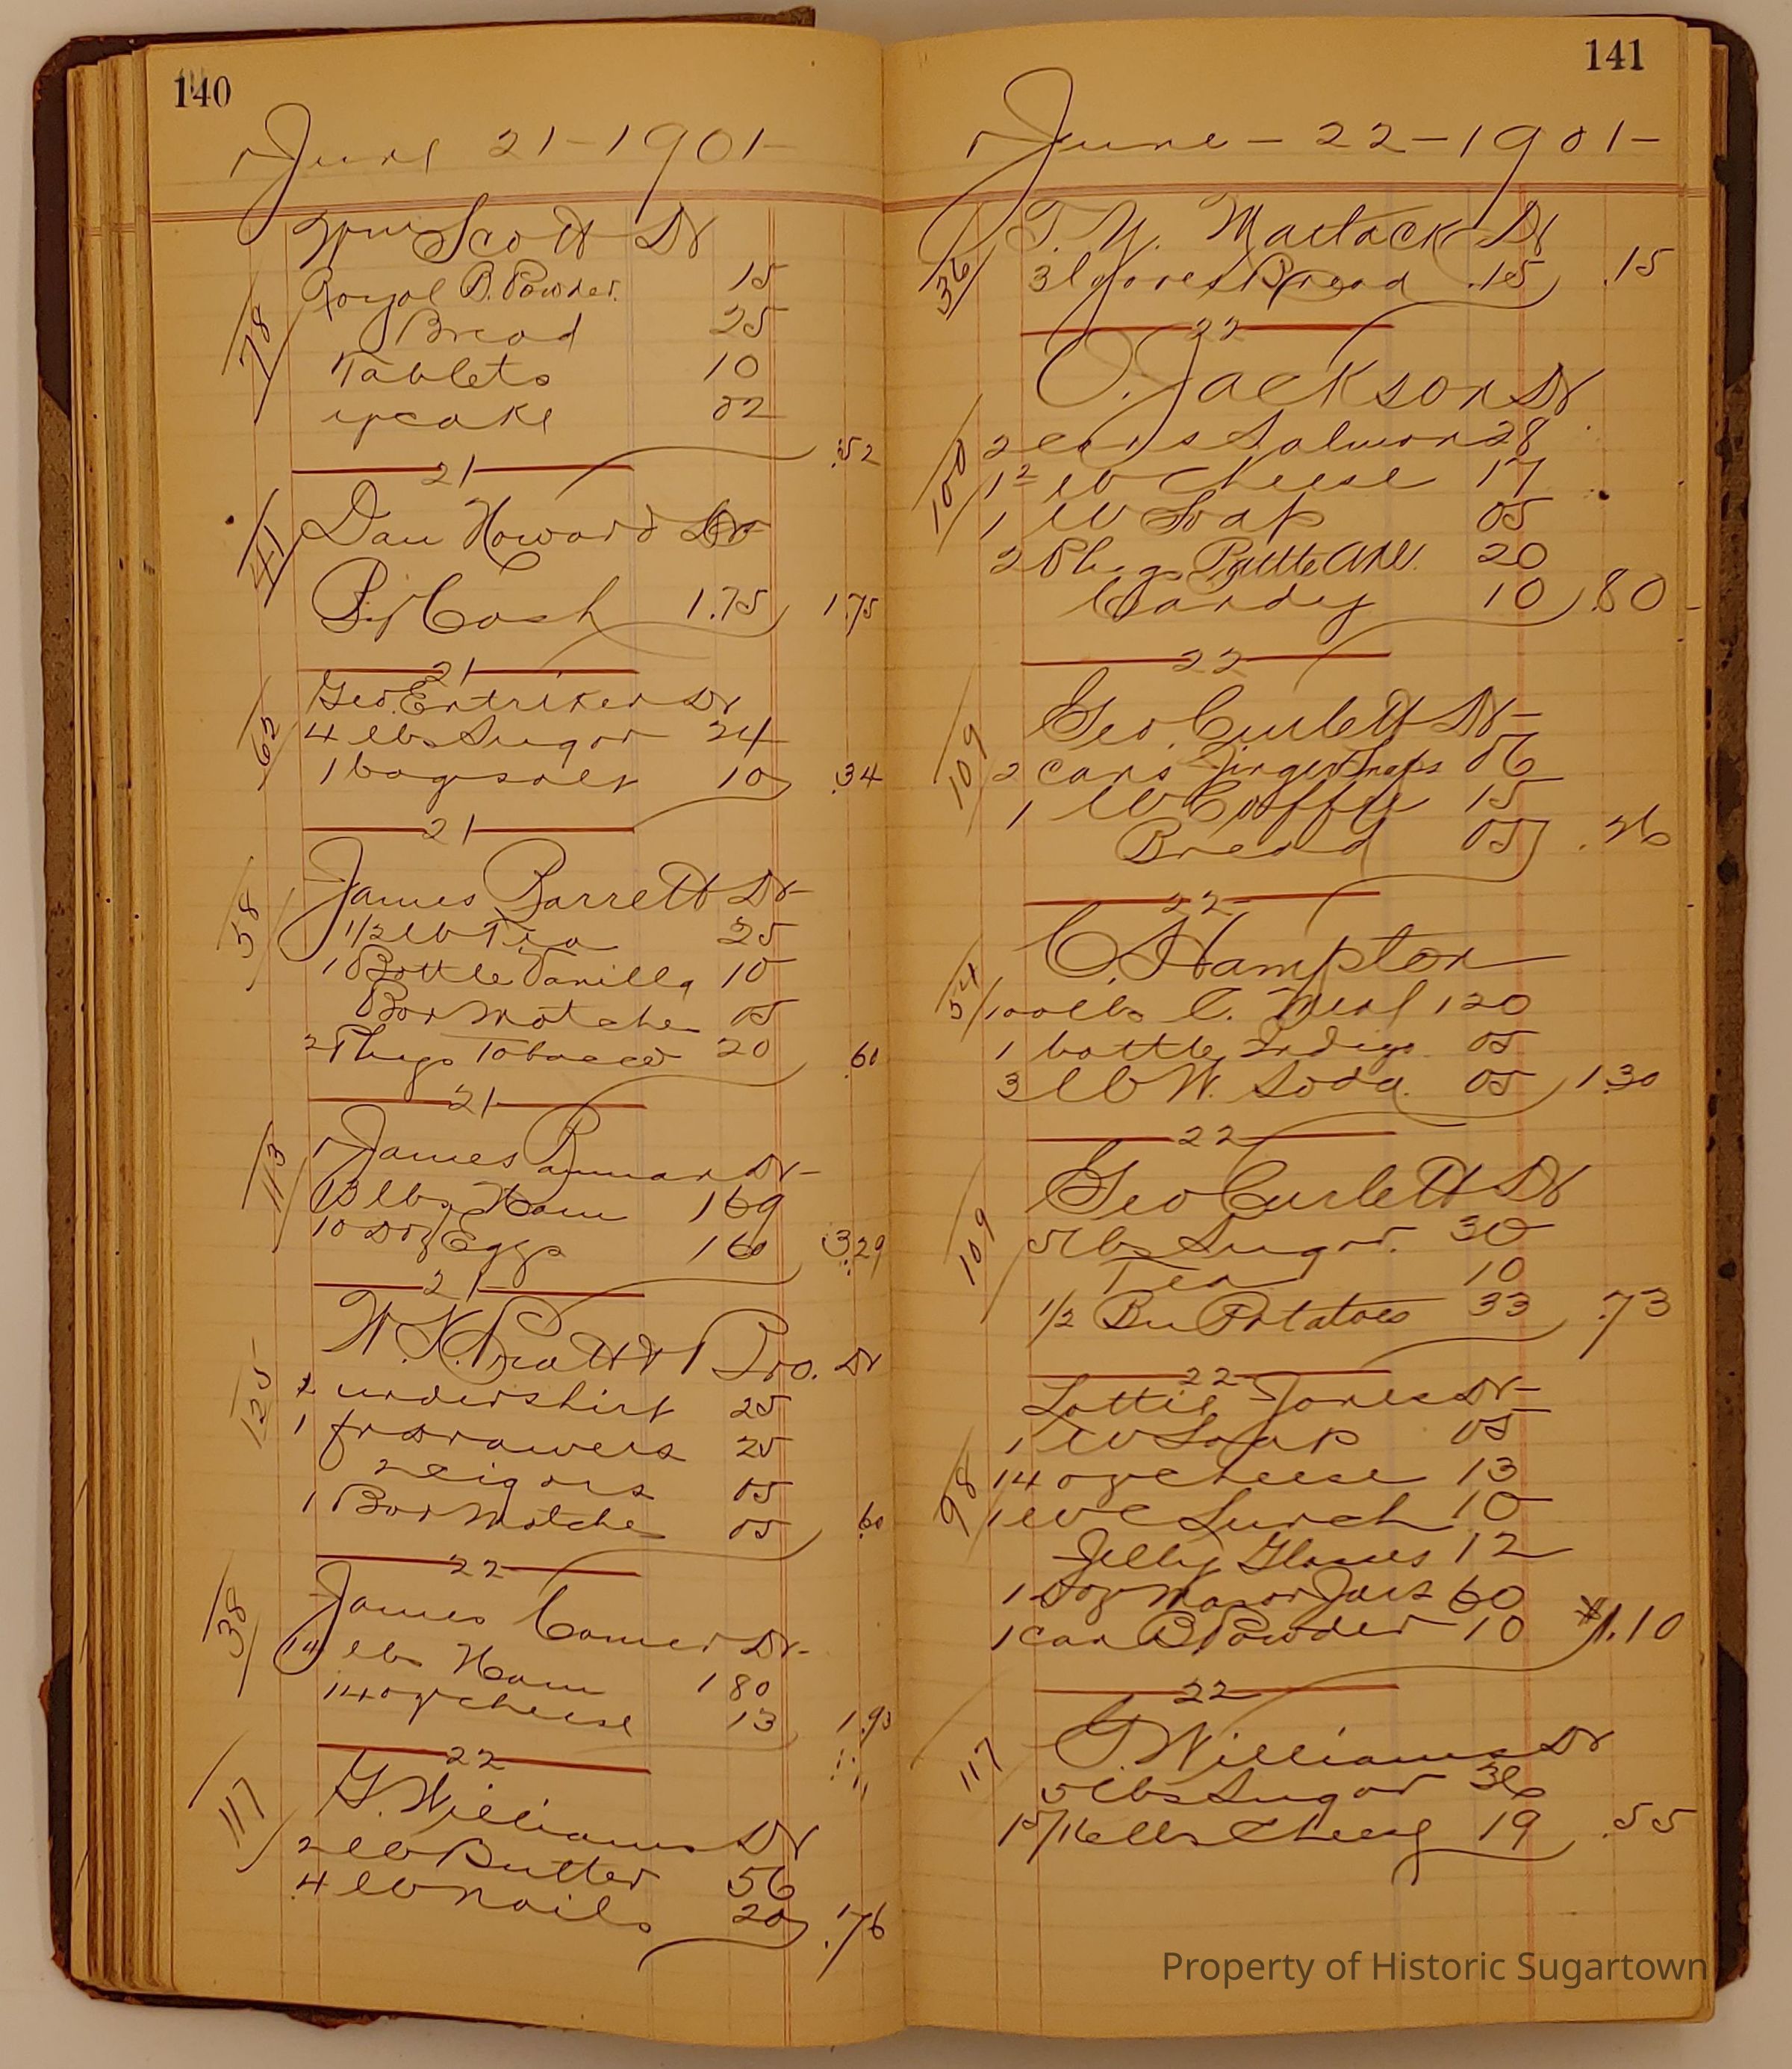 140
June 21-1901-
Wm Scott Dr
78 Royal B. Powder. 15
Bread 25
Tablets 10
cake 02
.52
21
41 Dan Howard Dr
By Cash 1.75 1.75
21
Geo. Entriken Dr
63 4 lbs Sugar 24
1 bag salt 10 .34
21
58 James Barrett Dr-
1/2 lb Tea 25
1 Bottle Vanilla 10
Box Matches 05
2 Plugs Tobacco 20 .60
21
113 James Dr-
13 lbs Ham 169
10 Doz Eggs 160 3.29
21
125 W. K. Pratt & Bro. Dr
1 undershirt 25
1 pr drawers 25
2 cigars 05
1 Box Matches 05 .60
22
38 James Comer Dr-
14 lbs Ham 180
14 oz cheese 13 1.93
22
117 G. Williams Dr
2 lb Butter 56
4 lb nails 20 .76
141
June-22-1901-
T. Y. Matlack Dr
36 3 loaves Bread .15 .15
22
O. Jackson Dr
100 2 cans Salmon 28
1 2 lb cheese 17
1 lb Soap 05
2 Plugs Battle Axe. 20
Candy 10 .80
22
Geo. Curlett Dr-
109 2 cans Ginger Snaps 06
1 lb Coffee 15
Bread 05 .26
22
C. Hampton
54 100 lbs C. Meal 120
1 bottle Indigo 05
3 lb W. Soda. 05 1.30
22
109 Geo Curlett Dr
5 lbs Sugar. 30
Tea 10
1/2 Bu Potatoes 33 .73
22
Lottie Jones Dr-
1 lb Soap 05
98 14 oz cheese 13
1 lb C Lunch 10
Jelly Glasses 12
1 Doz Mason Jars 60
1 can B Powder 10 1.10
22
117 G. Williams Dr
5 lbs Sugar 36
15/16 lbs Cheese 19 .55
Property of Historic Sugartown